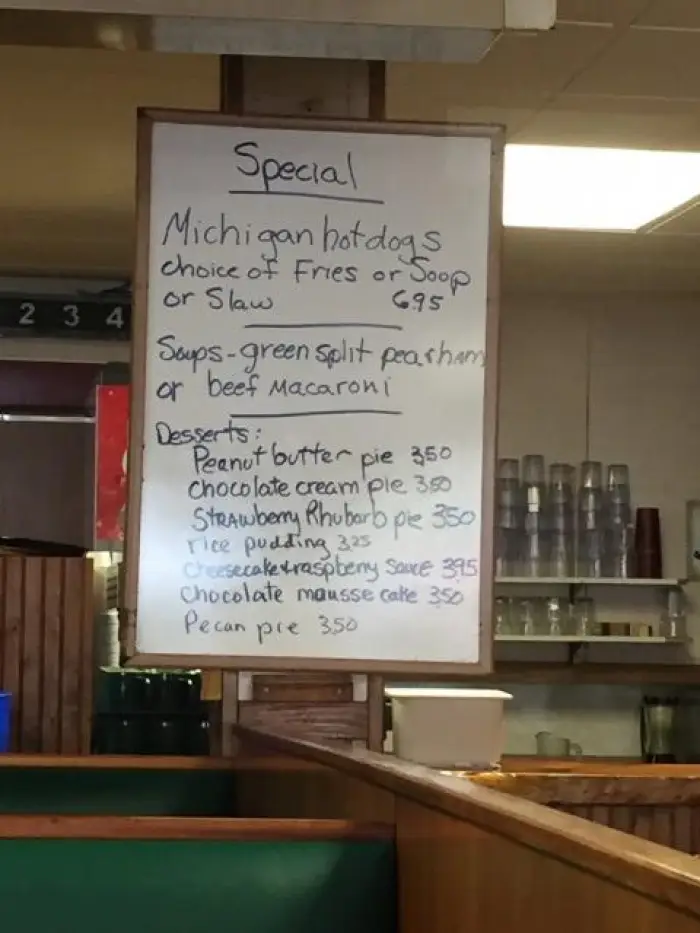 Special
Michigan hotdogs
choice of Fries or Soop
or Slaw 6.95
Soups - green split pea + ham
or beef Macaroni
Desserts:
Peanut butter pie 3.50
chocolate cream pie 3.50
Strawberry Rhubarb pie 350
rice pudding 3.25
cheesecake + raspberry sauce 3.95
Chocolate mousse cake 3.50
Pecan pie 3.50
2 3 4